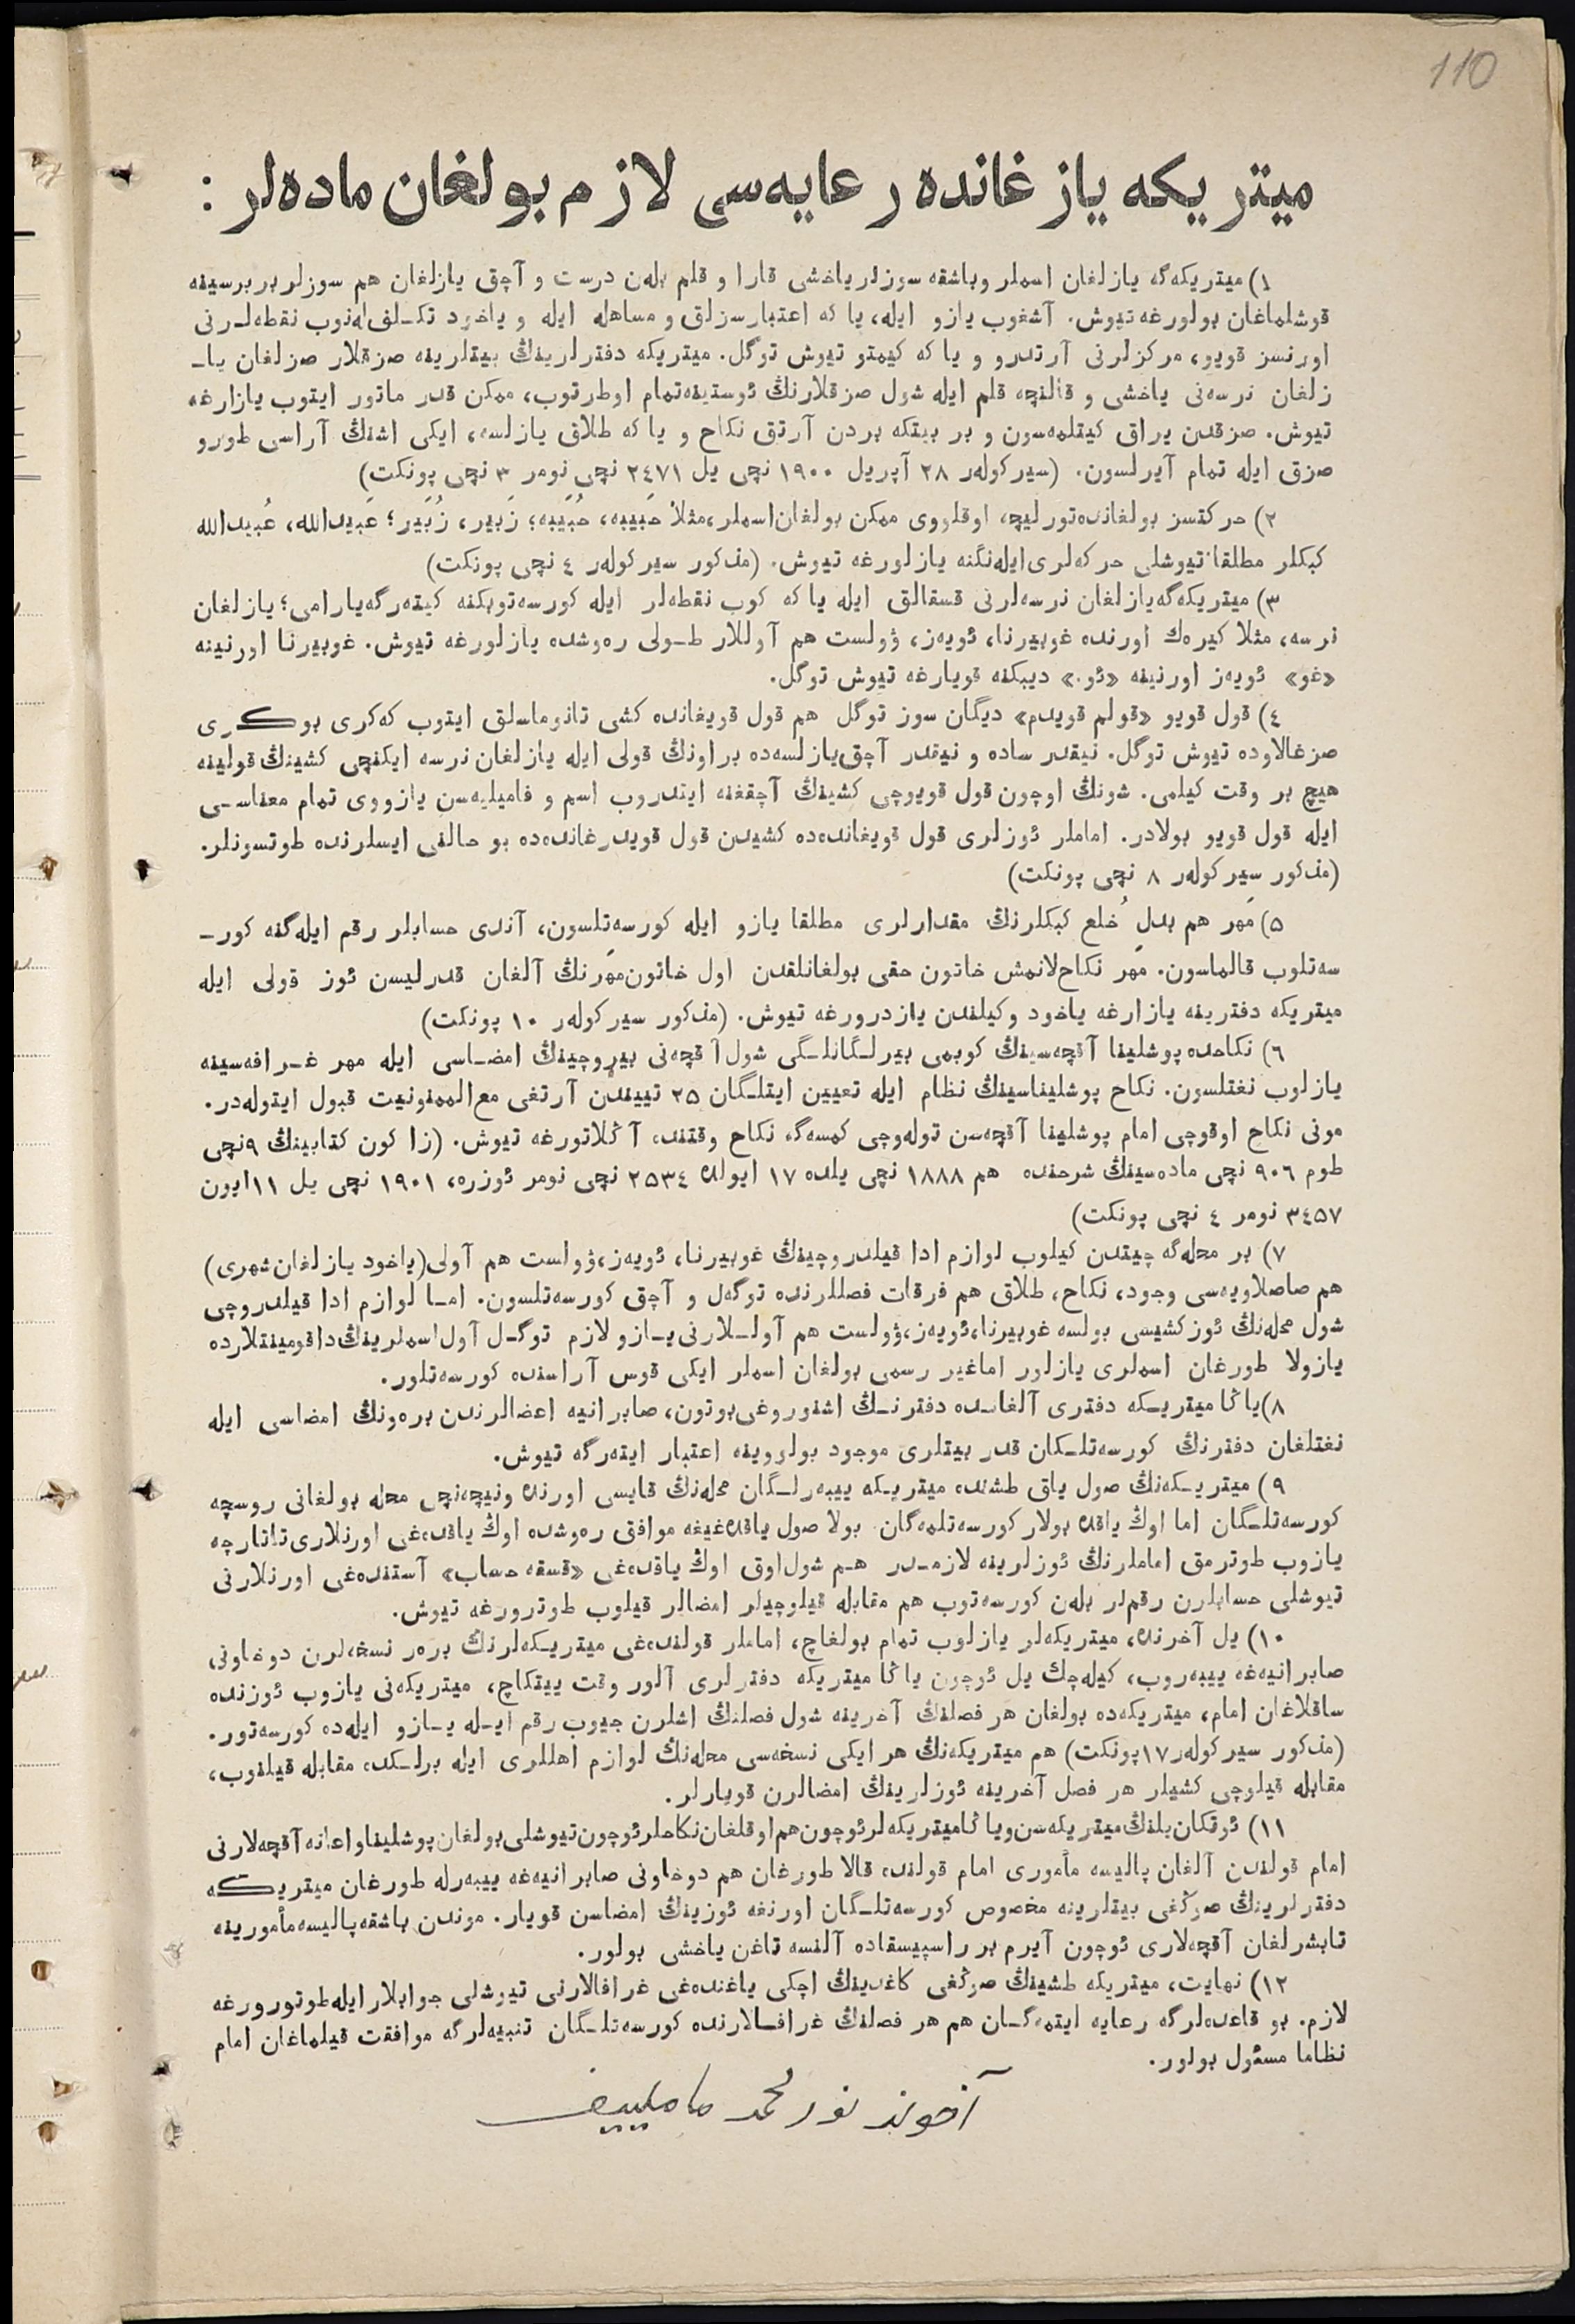 110
ميتريكه يازغانده رعايه‌سى لازم بولغان ماده‌لر :
١) ميتريكه‌گه يازلغان اسملر وباشقه سوزلر ياخشى قارا و قلم بله‌ن درست و آچق يازلغان هم سوزلر بربرسينه
قوشلماغان بولورغه تيوش. آشغوب يازو ايله، يا كه اعتبارسزلق و مساهله ايله و ياخود تكـلف له‌نوب نقطه‌لـرنى
اورنسز قويو، مركزلرنى آرتدرو و يا كه كيمتو تيوش توگل. ميتريكه دفترلرينڭ بيتلرينه صزقلار صزلغان يا-
زلغان نرسه‌نى ياخشى و قالنچه قلم ايله شول صزقلارنڭ ئوستينه تمام اوطرتوب، ممكن قدر ماتور ايتوب يازارغه
تيوش. صزقدن يراق كيتلمه‌سون و بر بيتكه بردن آرتق نكاح و يا كه طلاق يازلسه، ايكى اشنڭ آراسى طورو
صزق ايله تمام آيرلسون. (سيركولەر ٢٨ آپريل ١٩٠٠ نچى يل ٢٤٧١ نچى نومر ٣ نچى پونكت)
٢) حركتسز بولغانده تورليچه اوقلووى ممكن بولغان اسملر، مثلا حَبيبه، حُبَيبه؛ زَبير، زُبَير؛ عَبيدالله، عُبيدالله
كبكلر مطلقا تيوشلى حركه‌لرى ايله‌نگنه يازلورغه تيوش. (مذكور سيركولەر ٤ نچى پونكت)
٣) ميتريكه‌گه يازلغان نرسه‌لرنى قسقالق ايله يا كه كوب نقطه‌لر ايله كورسه‌توبكنه كيته‌رگه يارامى؛ يازلغان
نرسه، مثلا كيره‌ك اورنده غوبيرنا، ئويه‌ز، ۋولست هم آوللار طـولى ره‌وشده يازلورغه تيوش. غوبيرنا اورنينه
«غو» ئويه‌ز اورنينه «ئو.» ديبكنه قويارغه تيوش توگل.
٤) قول قويو «قولم قويدم» ديگان سوز توگل هم قول قويغانده كشى تانوماسلق ايتوب كه‌كرى بوكـرى
صزغالاوده تيوش توگل. نيقدر ساده و نيقدر آچق يازلسه‌ده براونڭ قولى ايله يازلغان نرسه ايكنچى كشينڭ قولينه
هيچ بر وقت كيلمى. شونڭ اوچون قول قويوچى كشينڭ آچقغنه ايتدروب اسم و فاميليه‌سن يازووى تمام معناسـى
ايله قول قويو بولادر. اماملر ئوزلرى قول قويغانده‌ده كشيدن قول قويدرغانده‌ده بو حالنى ايسلرنده طوتسونلر.
(مذكور سيركولەر ٨ نچى پونكت)
٥) مَهر هم بدلِ خُلع كبكلرنڭ مقدارلرى مطلقا يازو ايله كورسه‌تلسون، آندى حسابلر رقم ايله‌گنه كور-
سه‌تلوب قالماسون. مَهر نكاح‌لانمش خاتون حقى بولغانلقدن اول خاتون مَهرنڭ آلغان قدرليسن ئوز قولى ايله
ميتريكه دفترينه يازارغه ياخود وكيلندن يازدرورغه تيوش. (مذكور سيركولەر ١٠ پونكت)
٦) نكاحده پوشلينا آقچه‌سينڭ كوبمى بيرلـگانلـگى شول آقچه‌نى بيروچينڭ امضـاسى ايله مهر غـرافه‌سينه
يازلوب نغتلسون. نكاح پوشليناسينڭ نظام ايله تعيين ايتلـگان ٢٥ تييندن آرتغى مع‌الممنونيت قبول ايتوله‌در.
مونى نكاح اوقوچى امام پوشلينا آقچه‌سن توله‌وچى كمسه‌گه نكاح وقتنده آڭلاتورغه تيوش. (زاكون كتابينڭ ٩نچى
طوم ٩٠٦ نچى ماده‌سينڭ شرحنده هم ١٨٨٨ نچى يلده ١٧ ايولده ٢٥٣٤ نچى نومر ئوزره، ١٩٠١ نچى يل ١١ ايون
٣٤٥٧ نومر ٤ نچى پونكت)
٧) بر محله‌گه چيتدن كيلوب لوازم ادا قيلدروچينڭ غوبيرنا، ئويه‌ز، ۋولست هم آولى (ياخود يازلغان شهرى)
هم صاصلاويه‌سى وجود، نكاح، طلاق هم فرقات فصللرنده توگه‌ل و آچق كورسه‌تلسون. امـا لوازم ادا قيلدروچى
شول محله‌نڭ ئوز كشيسى بولسه غوبيرنا، ئويه‌ز، ۋولست هم آولـلارنى يـازو لازم توگـل آول اسملرينڭ داقومينتلارده
يازولا طورغان اسملرى يازلور اماغير رسمى بولغان اسملر ايكى قوس آراسنده كورسه‌تلور.
٨) ياڭا ميتريـكه دفترى آلغانـده دفترنـڭ اشنوروغى بوتون، صابرانيه اعضالرندن بره‌ونڭ امضاسى ايله
نغتلغان دفترنڭ كورسه‌تلـكان قدر بيتلرى موجود بولووينه اعتبار ايته‌رگه تيوش.
٩) ميتريـكه‌نڭ صول ياق طشنده ميتريـكه ييبه‌رلـگان محله‌نڭ قايسى اورنده ونيچه‌نچى محله بولغانى روسچه
كورسه‌تلـگان اما اوڭ ياقده بولار كورسه‌تلمه‌گان. بولا صول ياقده‌غيغه موافق ره‌وشده اوڭ ياقده‌غى اورنلارى تاتارچه
يازوب طوترمق اماملرنڭ ئوزلرينه لازمـدر هـم شول‌اوق اوڭ ياقده‌غى «قسقه حساب» آستنده‌غى اورنلارنى
تيوشلى حسابلرن رقم‌لر بله‌ن كورسه‌توب هم مقابله قيلوچيلر امضالر قيلوب طوترورغه تيوش.
١٠) يل آخرنده، ميتريكه‌لر يازلوب تمام بولغاچ، اماملر قولنده‌غى ميتريـكه‌لرنڭ بره‌ر نسخه‌لرن دوخاونى
صابرانيه‌غه ييبه‌روب، كيله‌چك يل ئوچون ياڭا ميتريكه دفترلرى آلور وقت ييتكاچ، ميتريكه‌نى يازوب ئوزنده
ساقلاغان امام، ميتريكه‌ده بولغان هر فصلنڭ آخرينه شول فصلنڭ اشلرن جيوب رقم ايـله يـازو ايله‌ده كورسه‌تور.
(مذكور سيركولەر ١٧ پونكت) هم ميتريكه‌نڭ هر ايكى نسخه‌سى محله‌نڭ لوازم اهللرى ايله برلـكده مقابله قيلنوب،
مقابله قيلوچى كشيلر هر فصل آخرينه ئوزلرينڭ امضالرن قويارلر.
١١) ئوتكان يلنڭ ميتريكه‌سن وياڭا ميتريكه‌لر ئوچون هم اوقلغان نكاحلر ئوچون تيوشلى بولغان پوشلينا و اعانه آقچه‌لارنى
امام قولندن آلغان پاليسه مأمورى امام قولنده قالا طورغان هم دوخاونى صابرانيه‌غه ييبه‌رله طورغان ميتريكه
دفترلرينڭ صوڭغى بيتلرينه مخصوص كورسه‌تلـگان اورنغه ئوزينڭ امضاسن قويار. موندن باشقه پاليسه مأمورينه
تابشرلغان آقچه‌لارى ئوچون آيرم بر راسپيسقاده آلنسه تاغن ياخشى بولور.
١٢) نهايت، ميتريكه طشينڭ صوڭغى كاغدينڭ اچكى ياغنده‌غى غرافالارنى تيوشلى جوابلار ايله طوتورورغه
لازم. بو قاعده‌لرگه رعايه ايتمه‌گـان هم هر فصلنڭ غرافـالارنده كورسه‌تلـگان تنبيه‌لرگه موافقت قيلماغان امام
نظاما مسئول بولور.
آخوند نورمحمد مامليیف